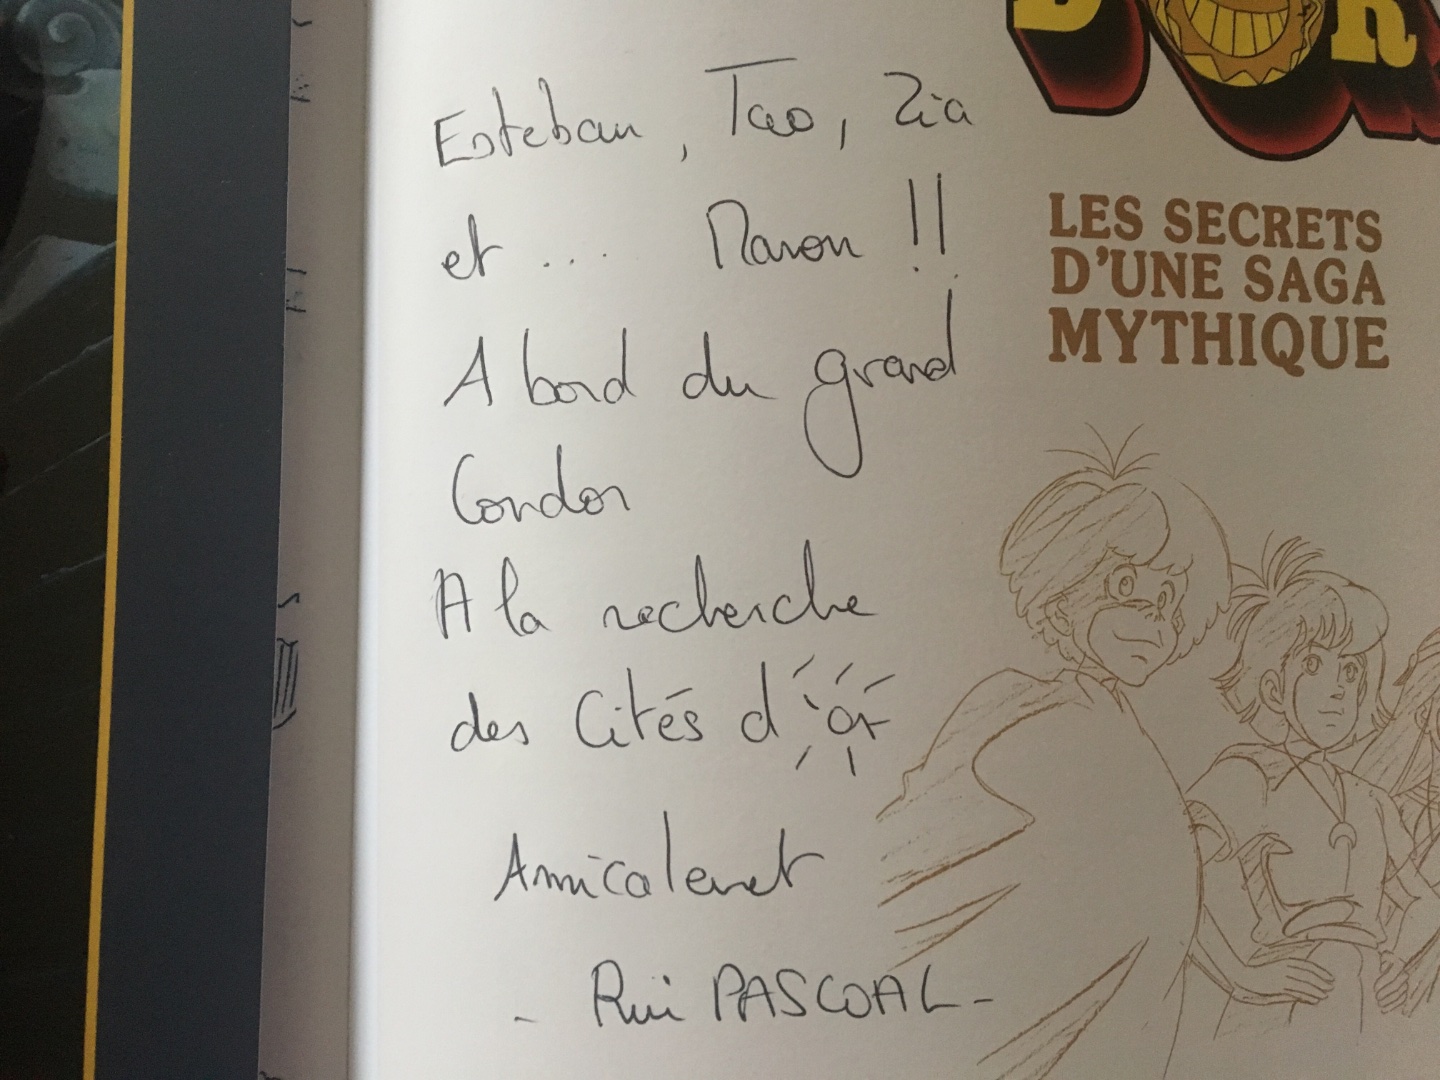 D'OR
LES SECRETS
D'UNE SAGA
MYTHIQUE
Esteban, Tao, Zia
et .... Manon !!
A bord du grand
Condor
A la recherche
des Cités d'or
Amicalement
- Rui PASCOAL -